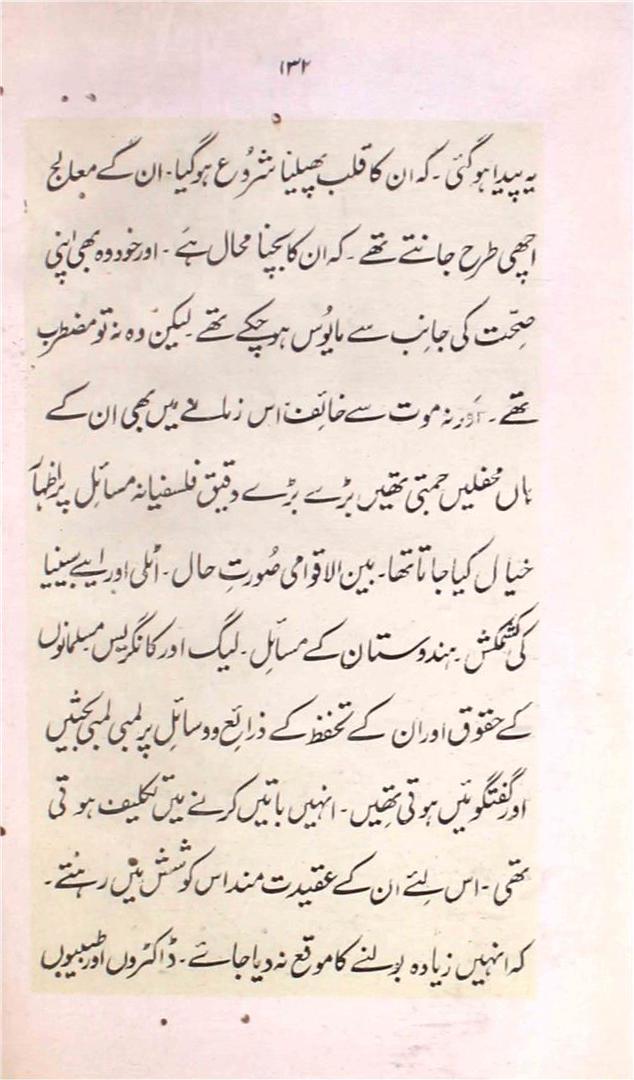 ۱۳۲
یہ پیدا ہوگئی ۔ کہ ان کا قلب پھیلنا شروع ہوگیا ۔ ان کے معالج
اچھی طرح جانتے تھے ۔ کہ ان کا بچنا محال ہے ۔ اور خود وہ بھی اپنی
صِحّت کی جانِب سے مایُوس ہو چکے تھے ۔ لیکن وہ نہ تو مضطرب
تھے ۔ اور نہ موت سے خائف اس زمانے میں بھی ان کے
ہاں محفلیں جمتی تھیں بڑے بڑے دقیق فلسفیانہ مسائل پر اظہار
خیال کیا جاتا تھا ۔ بین الاقوامی صُورتِ حال ۔ اٹلی اور ایبے سینیا
کی کشمکش ۔ ہندوستان کے مسائل ۔ لیگ اور کانگریس مسلمانوں
کے حقوق اور ان کے تحفظ کے ذرائع و وسائل پر لمبی لمبی بحثیں
اور گفتگوئیں ہوتی تھیں ۔ انہیں باتیں کرنے میں تکلیف ہوتی
تھی ۔ اس لئے ان کے عقیدت مند اس کوشش میں رہتے ۔
کہ انہیں زیادہ بولنے کا موقع نہ دیا جائے ۔ ڈاکٹروں اور طبیبوں